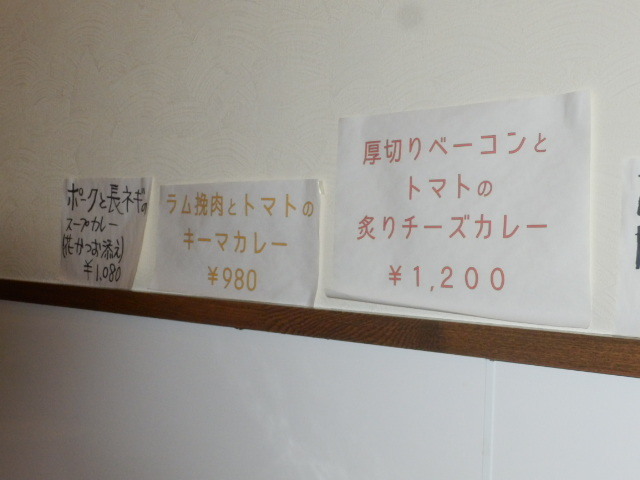 ポークと長ネギの
スープカレー
(花かつお添え)
¥1,080
ラム挽肉とトマトの
キーマカレー
¥980
厚切りベーコンと
トマトの
炙りチーズカレー
¥1,200